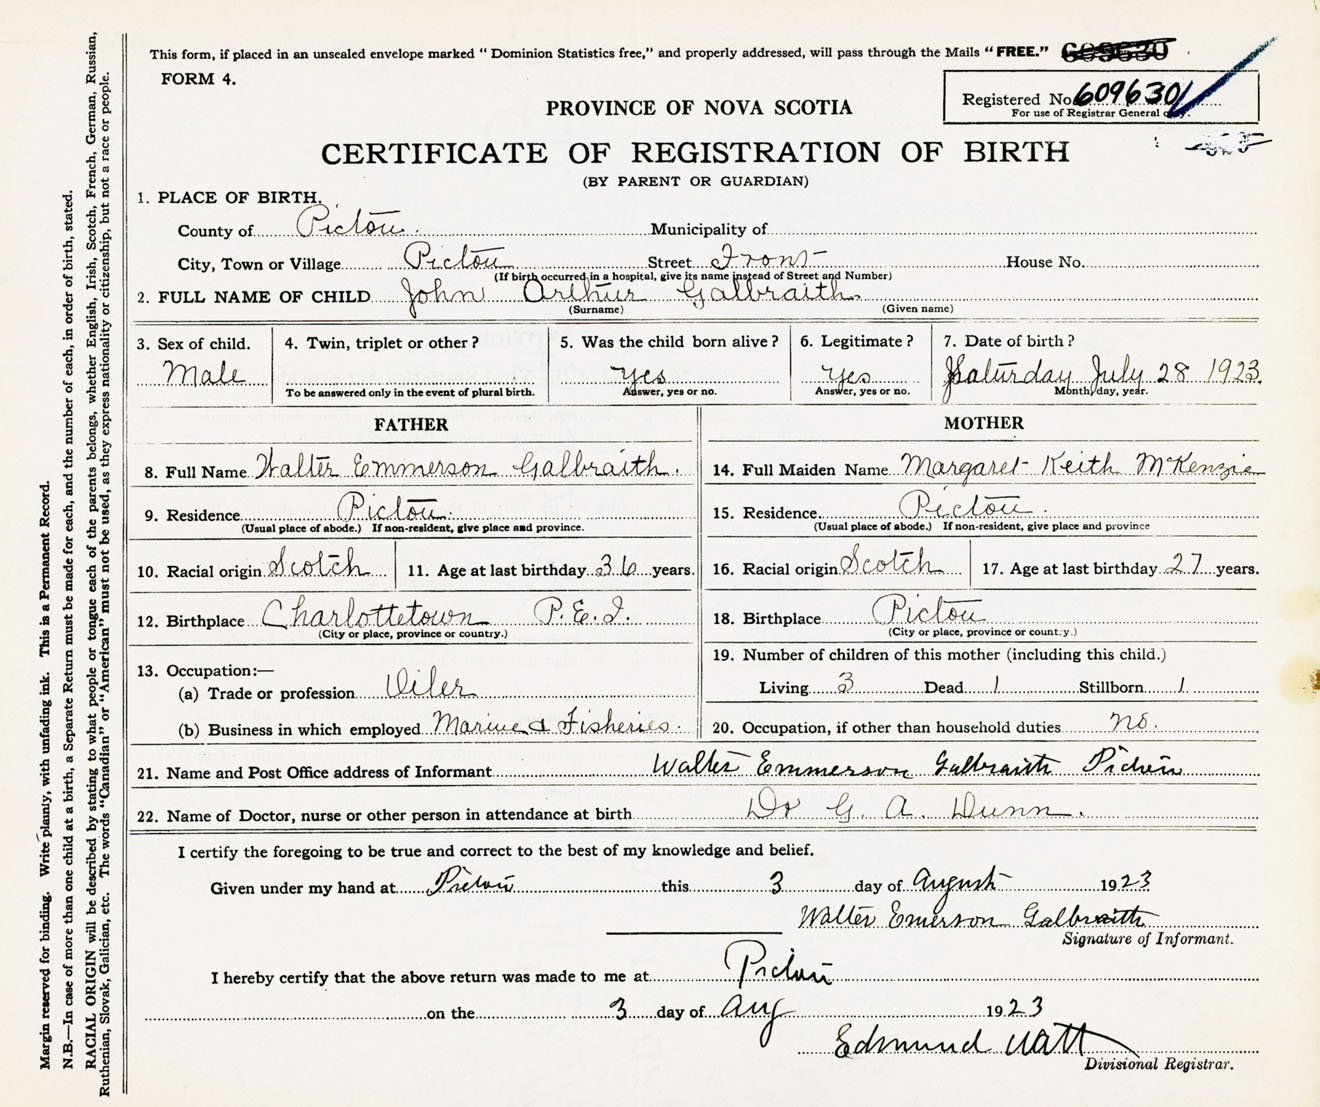 This form, if placed in an unsealed envelope marked “ Dominion Statistics free,” and properly addressed, will pass through the Mails “FREE.” 609630
FORM 4.
Registered No. 609630
For use of Registrar General only.
PROVINCE OF NOVA SCOTIA
CERTIFICATE OF REGISTRATION OF BIRTH
(BY PARENT OR GUARDIAN)
1. PLACE OF BIRTH.
County of Pictou. Municipality of
City, Town or Village Pictou Street Front House No.
(If birth occurred in a hospital, give its name instead of Street and Number)
2. FULL NAME OF CHILD John Arthur Galbraith.
(Surname) (Given name)
3. Sex of child. Male
4. Twin, triplet or other ?
To be answered only in the event of plural birth.
5. Was the child born alive ? yes
Answer, yes or no.
6. Legitimate ? Yes
Answer, yes or no.
7. Date of birth ? Saturday July 28 1923.
Month, day, year.
FATHER
8. Full Name Walter Emmerson Galbraith.
9. Residence Pictou.
(Usual place of abode.) If non-resident, give place and province.
10. Racial origin Scotch 11. Age at last birthday 36 years.
12. Birthplace Charlottetown P.E.I.
(City or place, province or country.)
13. Occupation:—
(a) Trade or profession Oiler
(b) Business in which employed Marine & Fisheries.
MOTHER
14. Full Maiden Name Margaret Keith McKenzie
15. Residence. Pictou.
(Usual place of abode.) If non-resident, give place and province
16. Racial origin Scotch 17. Age at last birthday 27 years.
18. Birthplace Pictou
(City or place, province or country.)
19. Number of children of this mother (including this child.)
Living 3 Dead 1 Stillborn 1
20. Occupation, if other than household duties no.
21. Name and Post Office address of Informant Walter Emmerson Galbraith Pictou
22. Name of Doctor, nurse or other person in attendance at birth Dr G. A. Dunn.
I certify the foregoing to be true and correct to the best of my knowledge and belief.
Given under my hand at Pictou this 3 day of August 1923
Walter Emerson Galbraith
Signature of Informant.
I hereby certify that the above return was made to me at Pictou
on the 3 day of Aug 1923
Edmund Watt
Divisional Registrar.
Margin reserved for binding. Write plainly, with unfading ink. This is a Permanent Record.
N.B.—In case of more than one child at a birth, a Separate Return must be made for each, and the number of each, in order of birth, stated.
RACIAL ORIGIN will be described by stating to what people or tongue each of the parents belongs, whether English, Irish, Scotch, French, German, Russian,
Ruthenian, Slovak, Galician, etc. The words “Canadian” or “American” must not be used, as they express nationality or citizenship, but not a race or people.